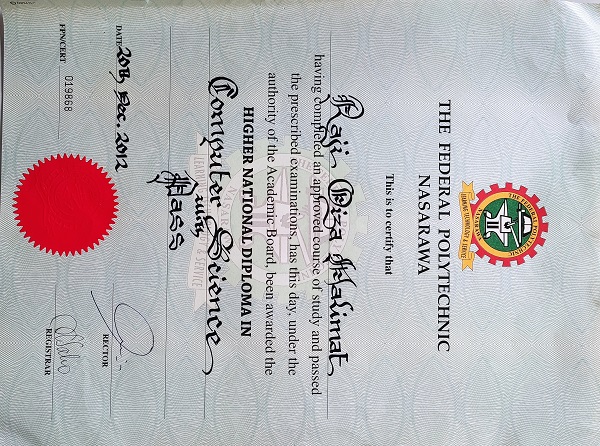 THE FEDERAL POLYTECHNIC
NASARAWA
LEARNING TECHNOLOGY & SERVICE
THE FEDERAL POLYTECHNIC
NASARAWA
This is to certify that
Raji Oiza Halimat
having completed an approved course of study and passed
the prescribed examinations, has this day, under the
authority of the Academic Board, been awarded the
HIGHER NATIONAL DIPLOMA IN
Computer Science
with
Pass
DATE 20th Dec. 2012
RECTOR
FPN/CERT 019868
REGISTRAR